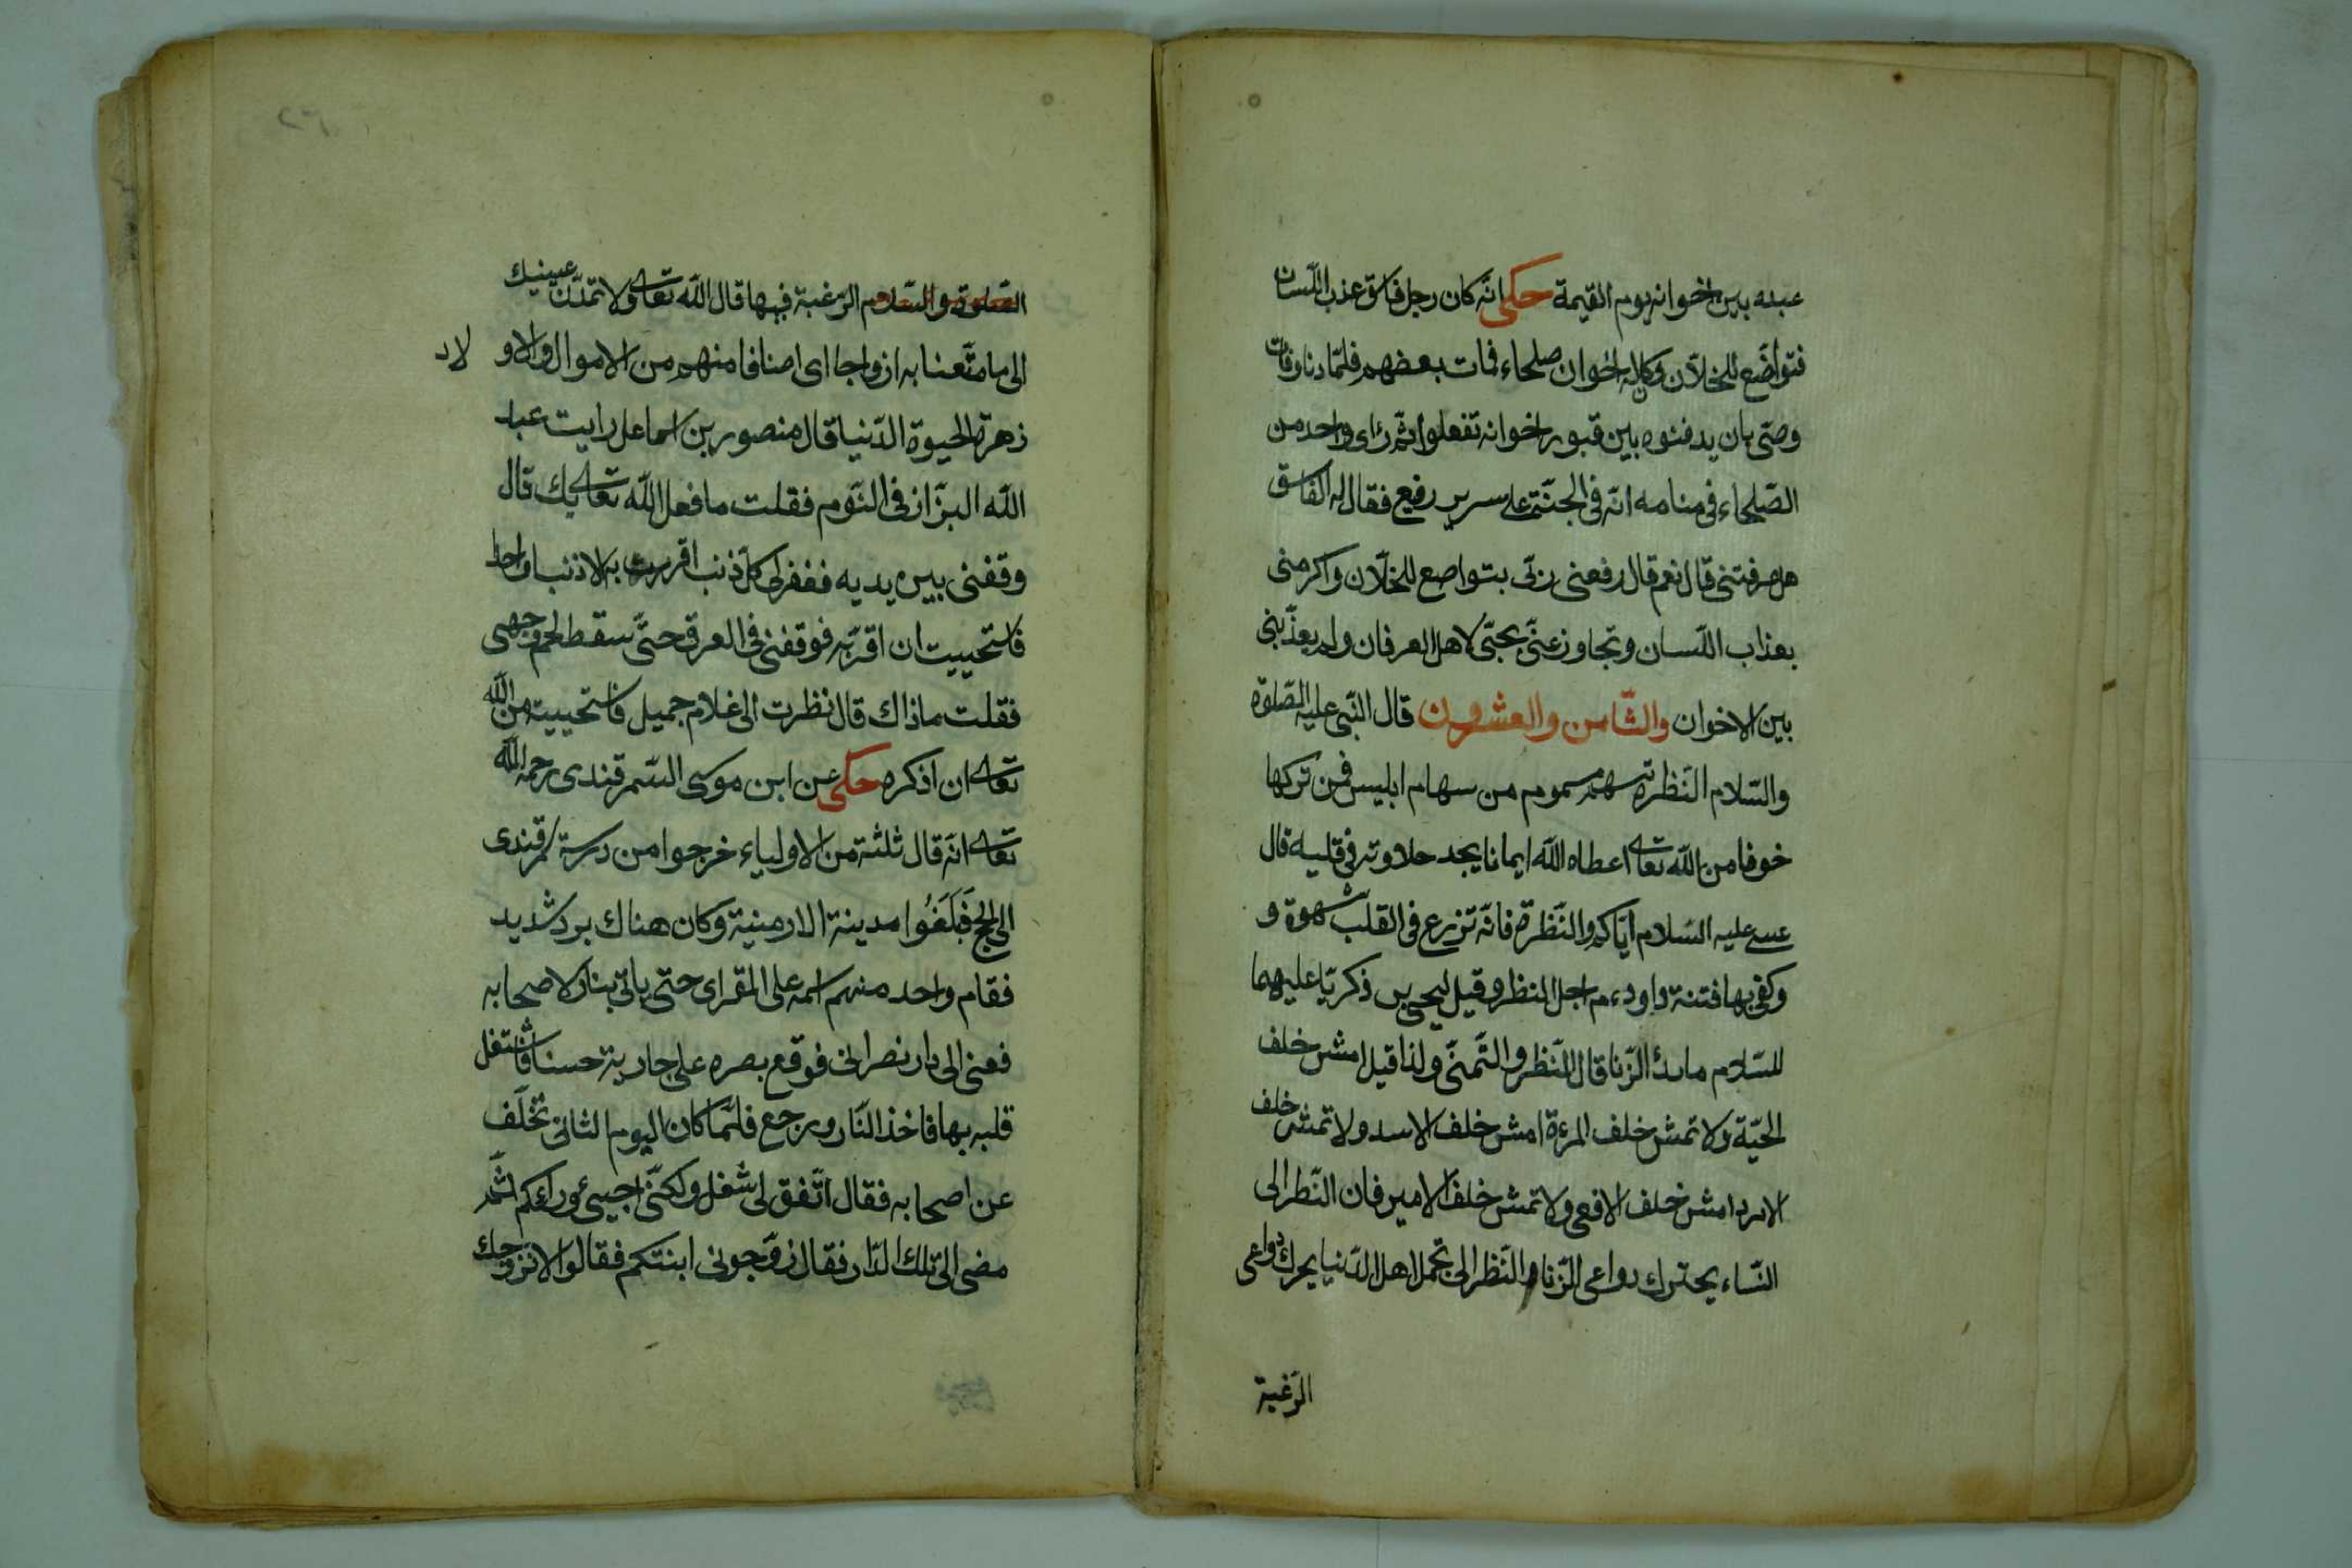 عبده بين اخوانه يوم القيمة حكى انه كان رجل فاسق عذب اللّسان
فتواضع للخلّان وكان له اخوان صلحاء فمات بعضهم فلمّا دنا وفات
وصّى بان يدفنوه بين قبور اخوانه تفعلوا ثمّ رأى واحد من
الصّلحاء فى منامه انّه فى الجنّة على سرير رفيع فقال له الفاسق
هل عرفتنى قال نعم قال رفعنى ربّى بتواضع للخلّان واكرمنى
بعذاب اللّسان وتجاوز عنّى بحبّى لاهل العرفان ولم يعذّبنى
بين الاخوان والثّامن والعشرون قال النّبى عليه الصّلوة
والسّلام النّظرة سهم مسموم من سهام ابليس فمن تركها
خوفا من اللّه تعالى اعطاه اللّه ايمانا يجد حلاوته فى قلبه قال
عيسى عليه السّلام ايّاكم والنّظرة فانّه تزرع فى القلب شهوة و
وكفى بها فتنة داود م اجل النظر وقيل ليحيى بن ذكريّا عليهما
للسّلام ما بدأ الزّنا قال النّظر والتّمنّى ولذا قيل امش خلف
الحيّة ولا تمش خلف المرءة امش خلف الاسد ولا تمش خلف
الامرد امش خلف الافعى ولا تمش خلف الامير فان النّظر الى
النّساء يحترك دواعى الزّنا والنّظر الى تجمل اهل الدّنيا يحرك دواعى
الرّغبة
الصّلوة والسّلام الرّغبة فيها قال اللّه تعالى ولا تمدّن عينيك
الى ما متّعنا به ازواجا اى اصنافا منهم من الاموال والاو لاد
زهرة الحيوة الدّنيا قال منصور بن اسماعل رايت عبد
اللّه البزّاز فى النّوم فقلت ما فعل اللّه تعالى بك قال
وقفنى بين يديه فغفر لى كلّ ذنب اقررت به الا ذنبا واحدا
فاستحييت ان اقرّ به فوقفنى فى العرق حتّى سقط لحم وجهى
فقلت ما ذاك قال نظرت الى غلام جميل فاستحييت من اللّه
تعالى ان اذكره حكى عن ابن موسى السّمرقندى رحمه اللّه
تعالى انّه قال ثلثة من الاولياء خرجوا من درسة سمرقندى
الى الحج فَبَلَغُوا مدينة الارمنية وكان هناك برد شديد
فقام واحد منهم اسمه على المقراى حتى ياتى بنار لاصحابه
فعنى الى دار نصرانى فوقع بصره على جارية حسنا فاشتغل
قلبه بها فاخذ النّار ورجع فلمّا كان اليوم الثانى تخلّف
عن اصحابه فقال اتّفق لى شغل ولكنّى اجيئ ورائكم ثمّ
مضى الى تلك الدّار فقال زوّجونى ابنتكم فقالوا لا نزوجك